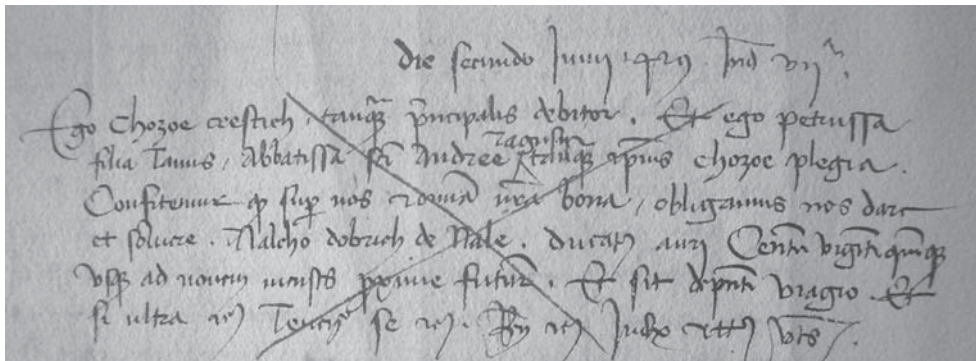 die secundo Junij 1429 Ind vij
Ego Chozoe crestich, tanqȝ pncipalis debitor. Et ego petrussa
filia Tanus, Abbatissa sci Andree ragusij tanqȝ chozoe plegia.
Confitemur qp sup nos et omia nra bona, obligamus nos dare
et soluere. Nalcho dobrich de Nale. ducat auri Centu viginti quinqȝ
vsqȝ ad nouem menses pxime futur. Et sit de pnti viagio. Et
si ultra etc Tenery se etc. Rn etc Judex etc